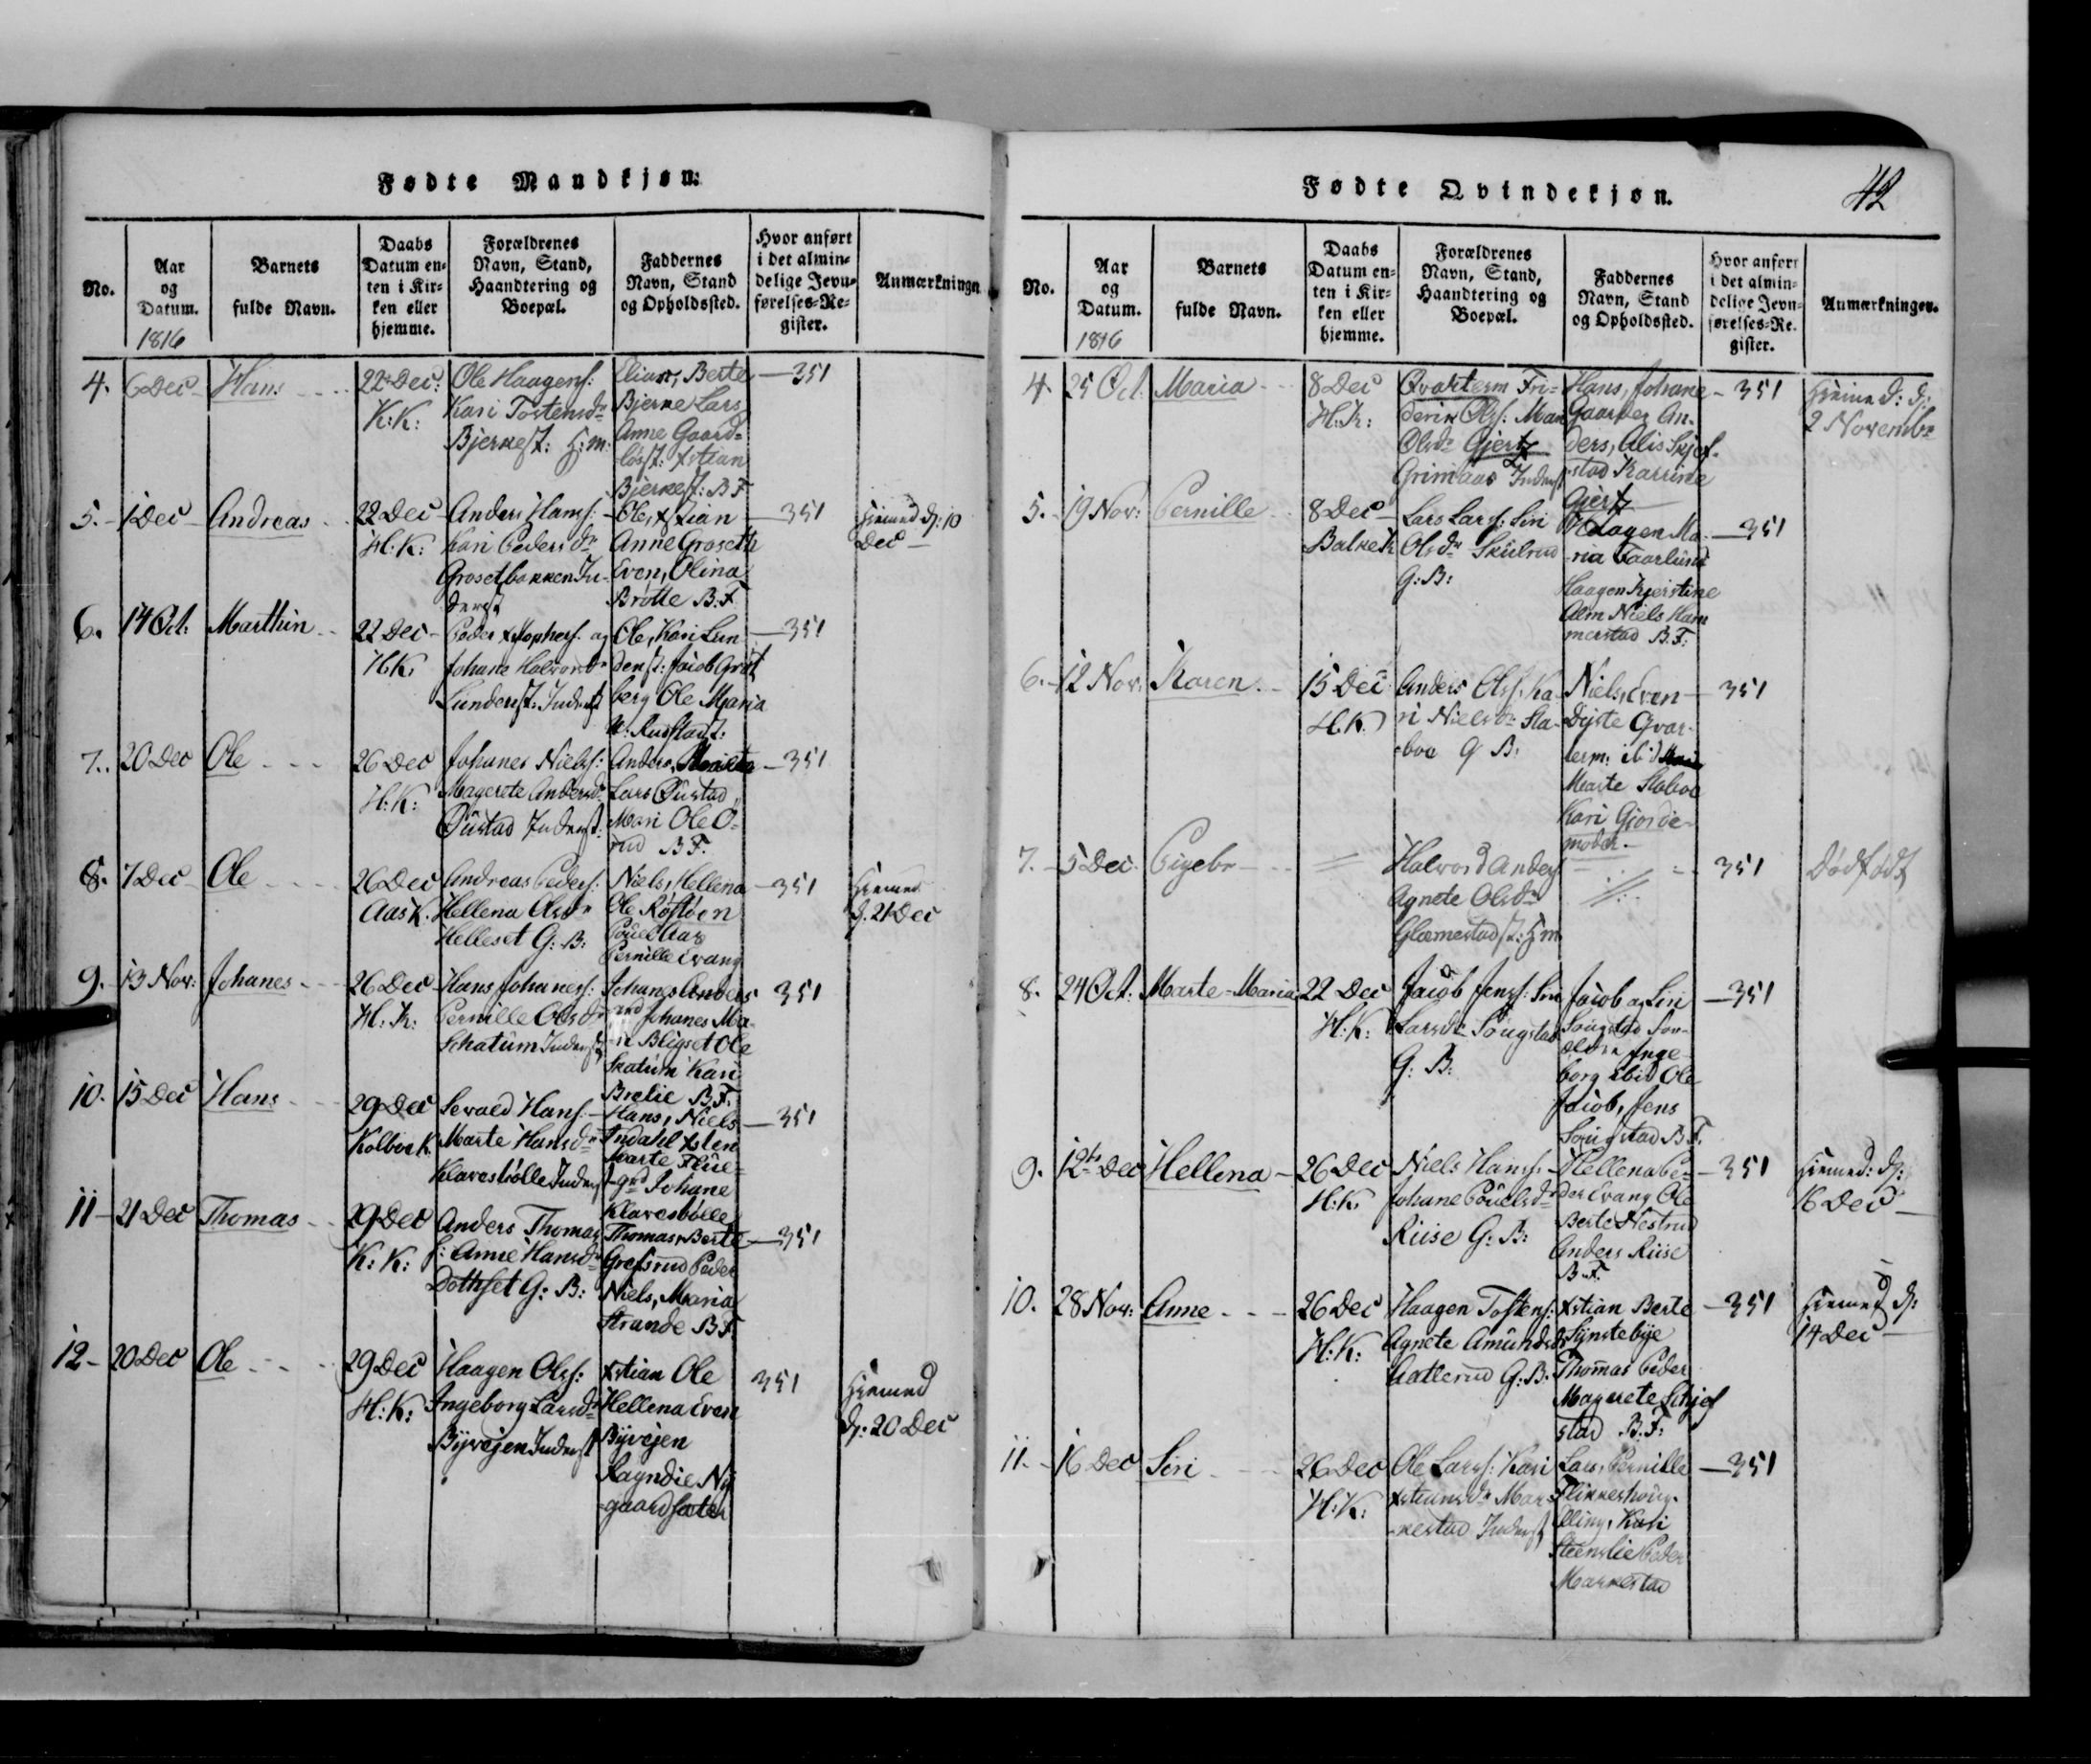 Fødte Mandkjøn.
No.
Aar
og
Datum.
1816
Barnets
fulde Navn.
Daabs
Datum en-
ten i Kir-
ken eller
hjemme.
Forældrenes
Navn, Stand,
Haandtering og
Boepæl.
Faddernes
Navn, Stand
og Opholdssted.
Hvor anført
i det almin-
delige Jevn-
førelses-Re-
gister.
Anmærkninge
4. 6 Dec Hans 22 Dec:
K: K:
Ole Haagens:
Kari Tostensdr
Bjerke
Berte
Bjerke Lars
Anne Gaard-
Bjerke B F
351
5. 1 Dec Andreas 22 Dec
H: K:
Anders Hans:
Kari Pedersdr
Grosetbakken In-
derst
Ole, Xstian
Anne Groseth
Even, Olina
Brøtte B. F.
351
Hiemed d: 10
Dec
6. 14 Oct: Marthin 22 Dec
H: K:
Peder Xstophers: og
Johane Halvorsdr
Ole, Kari Lun-
Jacob
berg Ole Maria
351
7. 20 Dec Ole 26 Dec
H: K:
Johanes Niels:
Magrete Andersdr
Øustad Inderst:
Anders,
Lars Øustad
Mari Ole Ø-
rud B F.
351
8. 7 Dec Ole 26 Dec
Aas K.
Andreas Peders:
Hellena Olsdr
Helleset G: B:
Niels, Hellena
Ole
Pouel Aas
Pernille Evang
351
Hiemed
d: 21 Dec
9. 13 Nov: Johanes 26 Dec
H: K:
Hans Johanes:
Pernille Olsdr
Schatum Inderst
Johanes Anders
Johanes Ma-
Bligset Ole
Skatum Kari
Brelie B. F.
351
10. 15 Dec Hans 29 Dec
Kolboe K.
Sevald Hans:
Marte Hansdr
Klaresbølle Inderst
Hans, Niels
Indahl
Marte
Johane
Klaresbølle
351
11 21 Dec Thomas 29 Dec
K: K:
Anders Thomas
s: Anne Hansdr
Dothset G: B:
Thomas, Berte
Grefsrud Peder
Niels, Maria
Strande B F.
351
12 20 Dec Ole 29 Dec
H: K:
Haagen Ols:
Ingeborg Larsdr
Byvejen Inderst
Xstian Ole
Hellena Even
Byvejen
Ragndie Ny
gaardsæter
351
Hiemed
d: 20 Dec
Fødte Qvindekjøn.
42
No.
Aar
og
Datum.
1816
Barnets
fulde Navn.
Daabs
Datum en-
ten i Kir-
ken eller
hjemme.
Forældrenes
Navn, Stand,
Haandtering og
Boepæl.
Faddernes
Navn, Stand
og Opholdssted.
Hvor anført
i det almin-
delige Jevn-
førelses-Re-
gister.
Anmærkninger.
4. 25 Oct. Maria 8 Dec
H: K:
Qvarterm Fri-
derik Ols: Mari
Olsdr Gjertz
Grimaas Inderst
Hans, Johane
Gaarder An-
ders, Alis Skjef-
stad Karrine
Gjertz
351
Hiemed: d:
2 Novembr
5. 19 Nov: Pernille 8 Dec
Balke K
Lars Lars: Siri
Olsdr Skiulrud
G: B:
Haagen Ma-
ria Faarlund
Haagen Kjerstine
Alm Niels Ham
merstad B. F.
351
6. 12 Nov: Karen 15 Dec
H: K.
Anders Ols: Ka-
ri Nielsdr Sta-
boe G B:
Niels, Even
Dyste Qvar-
term: ibid
Marte Staboe
Kari Giorde-
moder.
351
7. 5 Dec Pigebr
Halvord Anders
Agnete Olsdr
Glæmestad
351
Dødfødt
8. 24 Oct: Marte-Maria 22 Dec
H: K:
Jacob Jens: Siri
Larsdr Sougstad
G: B:
Jacob og Siri
Sougstad For-
ældre Inge-
borg ibid Ole
Jacob, Jens
Sougstad B F.
351
9. 12te Dec Hellena 26 Dec
H: K.
Niels Hans:
Johane Pouelsdr
Riise G: B:
Hellena Pe-
der Evang Ole
Berte Nestrud
Anders Riise
B. F.
351
Hiemed: d:
16 Dec
10. 28 Nov: Anne 26 Dec
H: K:
Haagen Tostens:
Agnete Amundsdr
Aatlerud G: B.
Xstian Berte
Synstebye
Thomas Peder
Magrete Schjef
stad B. F:
351
Hiemed d:
14 Dec
11. 16 Dec Siri 26 Dec
H: K:
Ole Lars: Kari
Xstiansdr Mar-
kestad Inderst
Lars, Pernille
Flikkeshoug
Elling, Kari
Steenslie Peder
Markestad
351